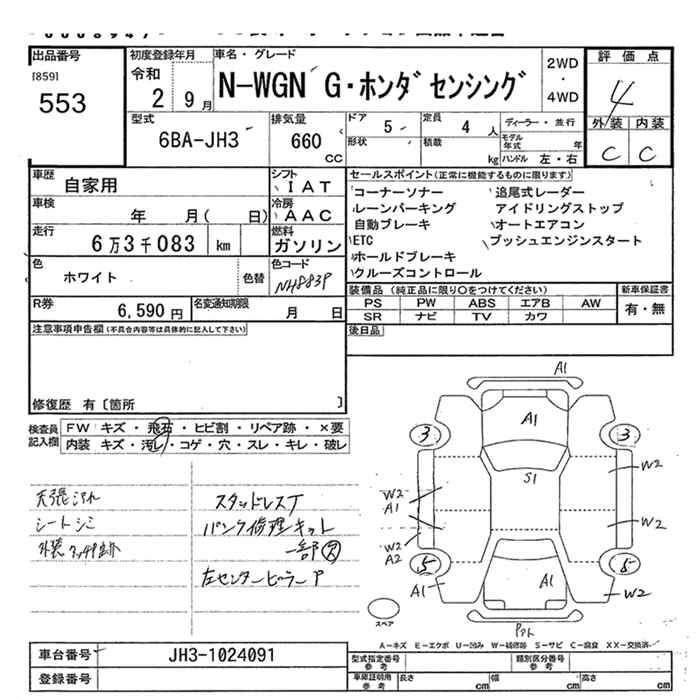 出品番号
[859]
553
初度登録年月
令和
2 9月
車名・グレード
N-WGN G・ホンダセンシング
2WD
・
4WD
評価点
4
外装 内装
C C
型式
6BA-JH3
排気量
660
cc
ドア
5
形状
定員
4 人
積載
kg
ディーラー・並行
モデル年式 年
ハンドル 左・右
車歴
自家用
シフト
IAT
車検
年 月( 日)
冷房
AAC
走行
6万3千083 km
燃料
ガソリン
色
ホワイト
色替
色コード
NH883P
R券
6,590円
名変通知期限
月 日
セールスポイント(正常に機能するものに限ります)
コーナーソナー
レーンパーキング
自動ブレーキ
ETC
ホールドブレーキ
クルーズコントロール
追尾式レーダー
アイドリングストップ
オートエアコン
プッシュエンジンスタート
装備品(純正品に限り○をつけてください)
PS PW ABS エアB AW
SR ナビ TV カワ
新車保証書
有・無
後日品
注意事項申告欄(不具合内容等は具体的に記入して下さい)
修復歴 有〔箇所 〕
検査員記入欄
FW キズ・飛石・ヒビ割・リペア跡・×要
内装 キズ・汚レ・コゲ・穴・スレ・キレ・破レ
天張汚れ
シートシミ
スタッドレスT
パンク修理キット
一部欠
左センターピラーP
A1
A1
3 3
S1
W2
W2
A1
W2
W2
A2
5 5
A1
A1
W2
スペア
A-キズ E-エクボ U-凹み W-補修跡 S-サビ C-腐食 XX-交換済
車台番号
JH3-1024091
登録番号
型式指定番号
参考
類別区分番号
参考
車庫証明用
参考
長さ cm
幅 cm
高さ cm